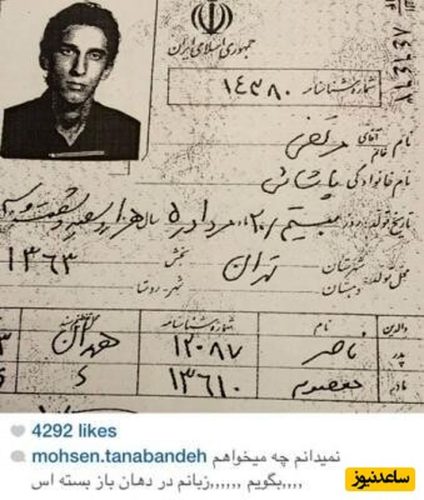 جمهوری اسلامی ایران
شماره شناسنامه ۱۴۳۸۰
نام آقای خانم مرتضی
نام خانوادگی پاشائی
تاریخ تولد: روز بیستم /۲۰ ماه مرداد ۵ سال هزار و سیصد و شصت و سه
۱۳۶۳
محل تولد: شهرستان تهران بخش
دبستان شهر - روستا
والدین نام شماره شناسنامه
پدر ناصر ۱۲۰۸۷ همدان
مادر معصومه ۱۳۶۱۰ "
4292 likes
mohsen.tanabandeh نمیدانم چه میخواهم
بگویم ,,,,,,زبانم در دهان باز بسته اس,,,,
ساعدنیوز